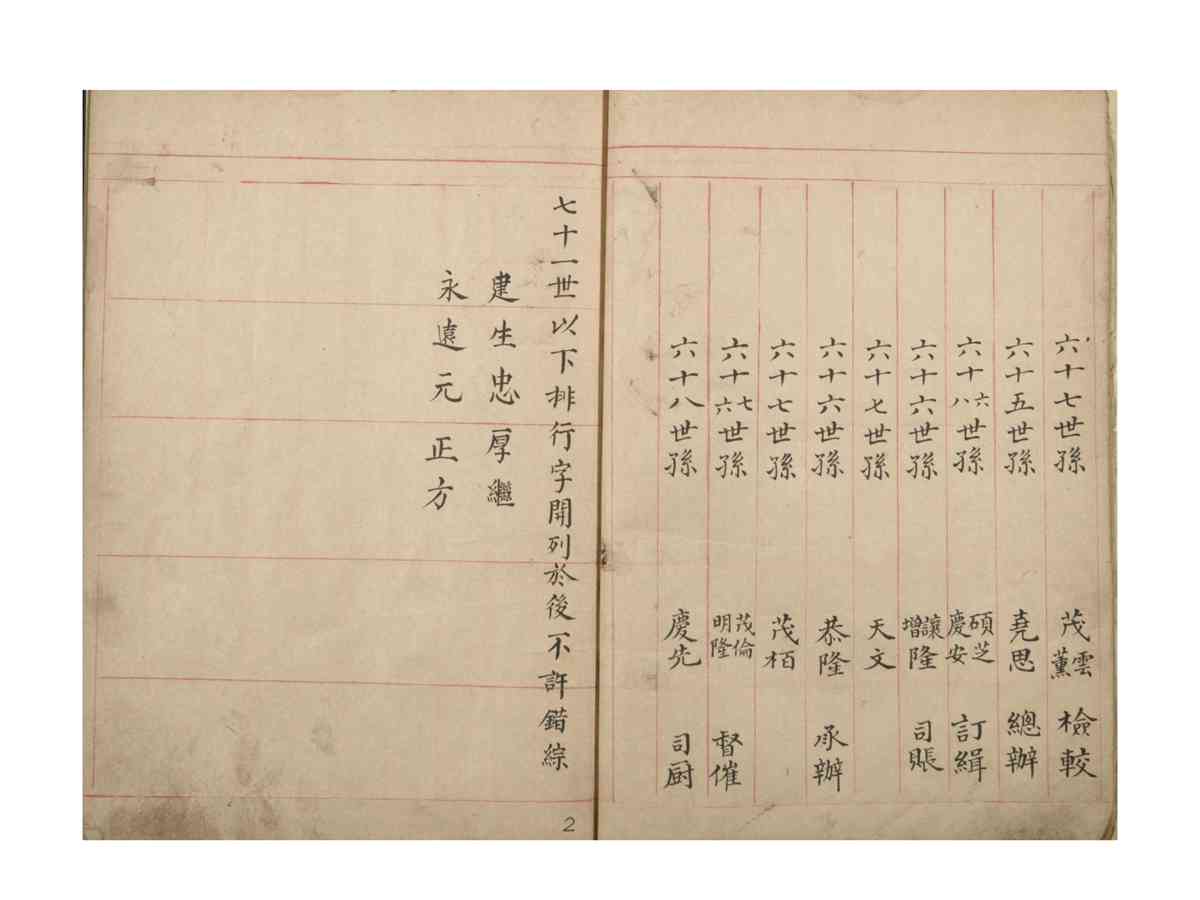 六十七世孫 茂雲薰 檢較
六十五世孫 堯思 總辦
六十六八世孫 碩芝慶安 訂緝
六十六世孫 讓增隆 司賬
六十七世孫 天文
六十六世孫 恭隆 承辦
六十七世孫 茂栢
六十七六世孫 茂倫明隆 督催
六十八世孫 慶先 司厨
七十一世以下排行字開列於後不許錯綜
建生忠厚繼
永遠元正方
2